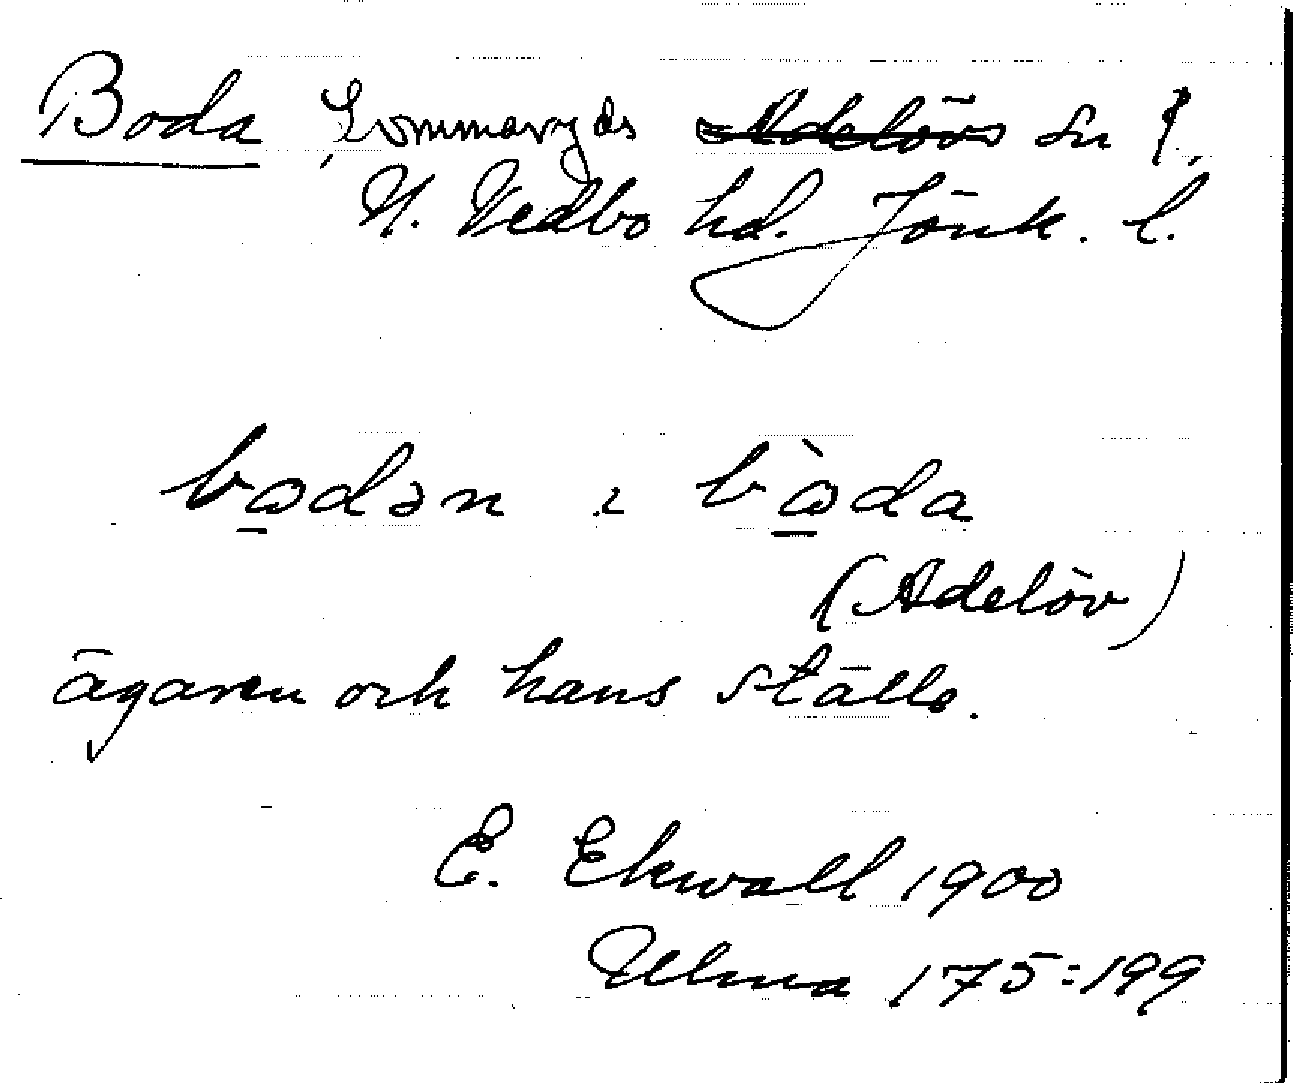 Boda Lommaryds Adelövs sn
N. Vedbo hd. Jönk. l.
bo̲dən ɩ bò̲da
(Adelöv)
ägaren och hans ställe.
E. Ekwall 1900
Ulma 175:199